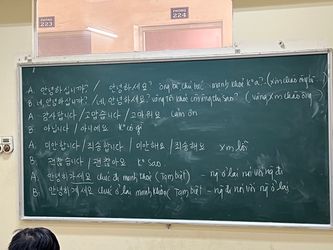 PHÒNG
223
PHÒNG
224
A. 안녕하십니까? / 안녕하세요? ông bà chú bác mạnh khoẻ k° ạ? (xin chào ông bà
B. 네, 안녕하십니까? / 네, 안녕하세요? vâng tôi khoẻ còn ông thì sao? (vâng xin chào ông
A. 감사합니다 / 고맙습니다 / 고마워요 cảm ơn
B. 아닙니다 / 아니에요 k° có gì
A. 미안합니다 / 죄송합니다 / 미안해요 / 죄송해요 xin lỗi
B. 괜찮습니다 / 괜찮아요 k° sao
A. 안녕히 가세요 chúc đi mạnh khoẻ (Tạm biệt) - ng ở lại nói với ng đi
B. 안녕히 계세요 chúc ở lại mạnh khoẻ (Tạm biệt) - ng đi nói với ng ở lại